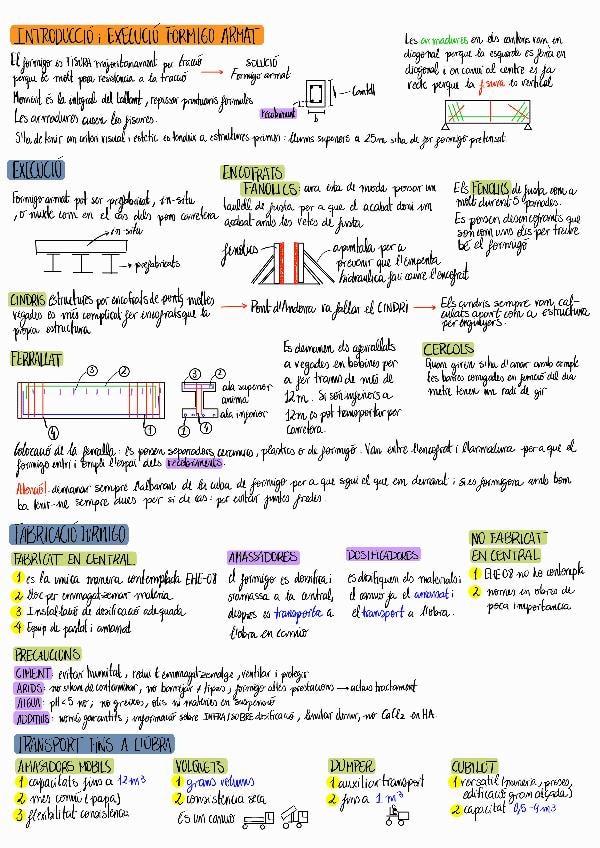 INTRODUCCIÓ i EXECUCIÓ FORMIGÓ ARMAT
El formigó es FISURA majoritariament per tracció
perquè té molt poca resistencia a la tracció
SOLUCIÓ
Formigó armat
Moment és la integral del tallant, repassar prontuaris formules
Les armadures cusen les fisures.
recobriment
b
Cantell
Les armadures en els cantons van en
diagonal perque la esquerda es fa en
diagonal i en canvi al centre es fa
recte perque la fisura es vertical
S'ha de tenir un criteri visual i estetic es tendeix a estructures primes: llums superiors a 25m s'ha de fer formigó pretensat.
EXECUCIÓ
Formigo armat pot ser prefabricat, in-situ
, o mixte com en el cas dels ponts carretera
in-situ
prefabricats
ENCOFRATS
FANÒLICS: ara esta de moda posar un
taulell de fusta per a que el acabat doni un
acabat amb les vetes de fusta
fenòlics
apuntala per a
prevenir que l'empenta
hidraulica faci caure l'encofrat
Els FENOLICS de fusta com a
molt duren 4-5 posades.
Es posen desencofrants que
son com uns olis per treure
bé el formigó
CINDRIS Estructures per encofrats de ponts, moltes
vegades es més complicat fer encofrats que la
propia estructura
Pont d'Andorra va fallar el CINDRI
Els cindris sempre van cal-
culats apart com a estructura
per enginyers.
FERRALLAT
3
2
4
1
3
2
ala superior
anima
ala inferior
2
1
Es demanen els
a vegades en bobines per
a fer trams de més de
12m. Si són inferiors a
12m es pot transportar per
carretera.
CERCOLS
Quan girem s'ha d'anar amb compte
les barres corrugades en funció del dia
metre tenen un radi de gir
Colocació de la ferralla: es posen separadors ceramics, plastics o de formigó. Van entre l'encofrat i l'armadura per a que el
formigó entri i ompli l'espai dels recobriments.
Atenció! demanar sempre l'albarán de la cuba de formigó per a que sigui el que em demanat i si es formigona amb bom
ba tenir-ne sempre dues per si de cas: per evitar juntes fredes.
FABRICACIÓ FORMIGÓ
FABRICAT EN CENTRAL
1 es la unica manera contemplada EHE-08
2 Lloc per emmagatzemar materia
3 Instal·lació de dosificació adequada
4 Equip de pastat i amasat
AMASSADORES
el formigo es dosifica i
s'amassa a la central,
despres es transporta a
l'obra en camió
DOSIFICADORES
es dosifiquen els materials i
el camió fa el amasat i
el transport a l'obra.
NO FABRICAT
EN CENTRAL
1 EHE-08 no ho contempla
2 només en obres de
poca importancia
PRECAUCIONS
CIMENT: evitar humitat, reduir t emmagatzematge, ventilar i protegir
ARIDS: no s'han de contaminar, no barrejar ≠ tipus, formigo altes prestacions → actius tractament
AIGUA: pH<5 no; no greixos, olis ni materies en suspensió
ADDITIUS: només garantits; informació sobre INFRA/SOBRE dosificació, limitar clorur, no CaCl2 en HA.
TRANSPORT FINS A L'OBRA
AMASADORS MOBILS
1 capacitats fins a 12 m³
2 més comú (papa)
3 flexibilitat consistencia
VOLQUETS
1 grans volums
2 consistencia seca
És un camió
DUMPER
1 auxiliar transport
2 fins a 1 m³
CUBILOT
1 versatil (mineria, preses,
edificació gran alçada)
2 capacitat 0,5-4m3